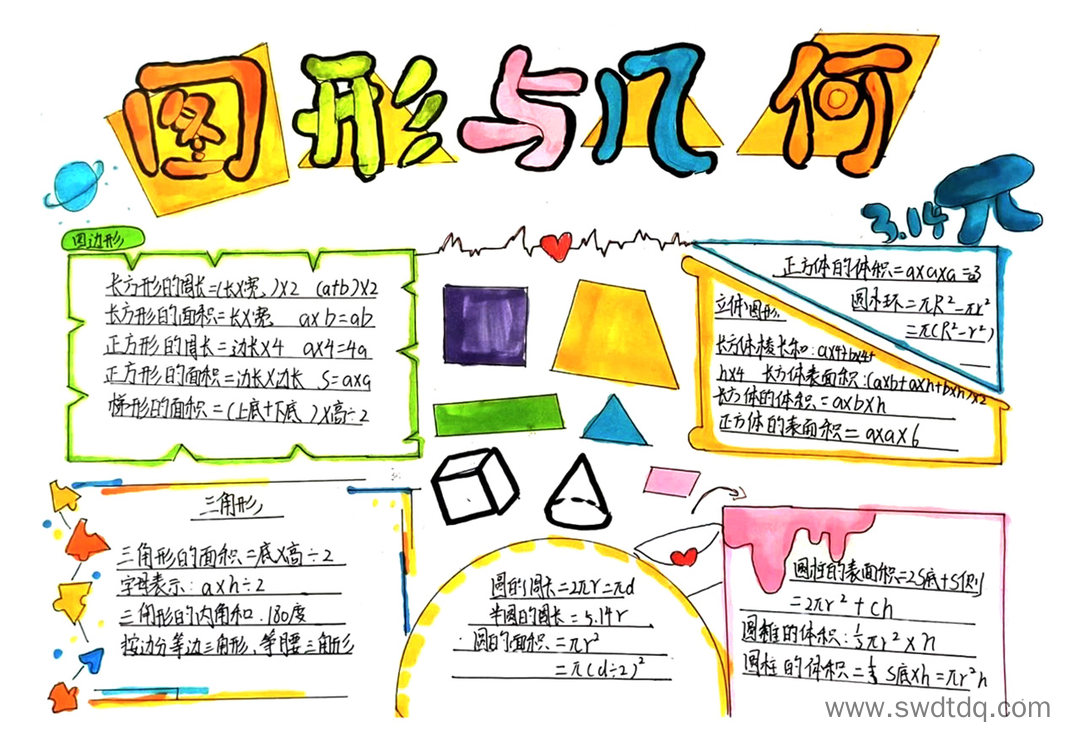 图形与几何
3.14 π
四边形
长方形的周长=(长×宽)×2 (a+b)×2
长方形的面积=长×宽 a×b=ab
正方形的周长=边长×4 a×4=4a
正方形的面积=边长×边长 S=a×a
梯形的面积=(上底+下底)×高÷2
正方体的体积=a×a×a=a3
圆环=πR²-πr²
=π(R²-r²)
立体图形
长方体棱长和:a×4+b×4+
h×4 长方体表面积:(a×b+a×h+b×h)×2
长方体的体积=a×b×h
正方体的表面积=a×a×6
三角形
三角形的面积=底×高÷2
字母表示:a×h÷2
三角形的内角和.180度
按边分等边三角形、等腰三角形
圆的周长=2πr=πd
半圆的周长=5.14r
圆的面积=πr²
=π(d÷2)²
圆柱的表面积=2S底+S侧
=2πr²+Ch
圆锥的体积:⅓πr²×h
圆柱的体积= S底×h=πr²h
www.swdtdq.com